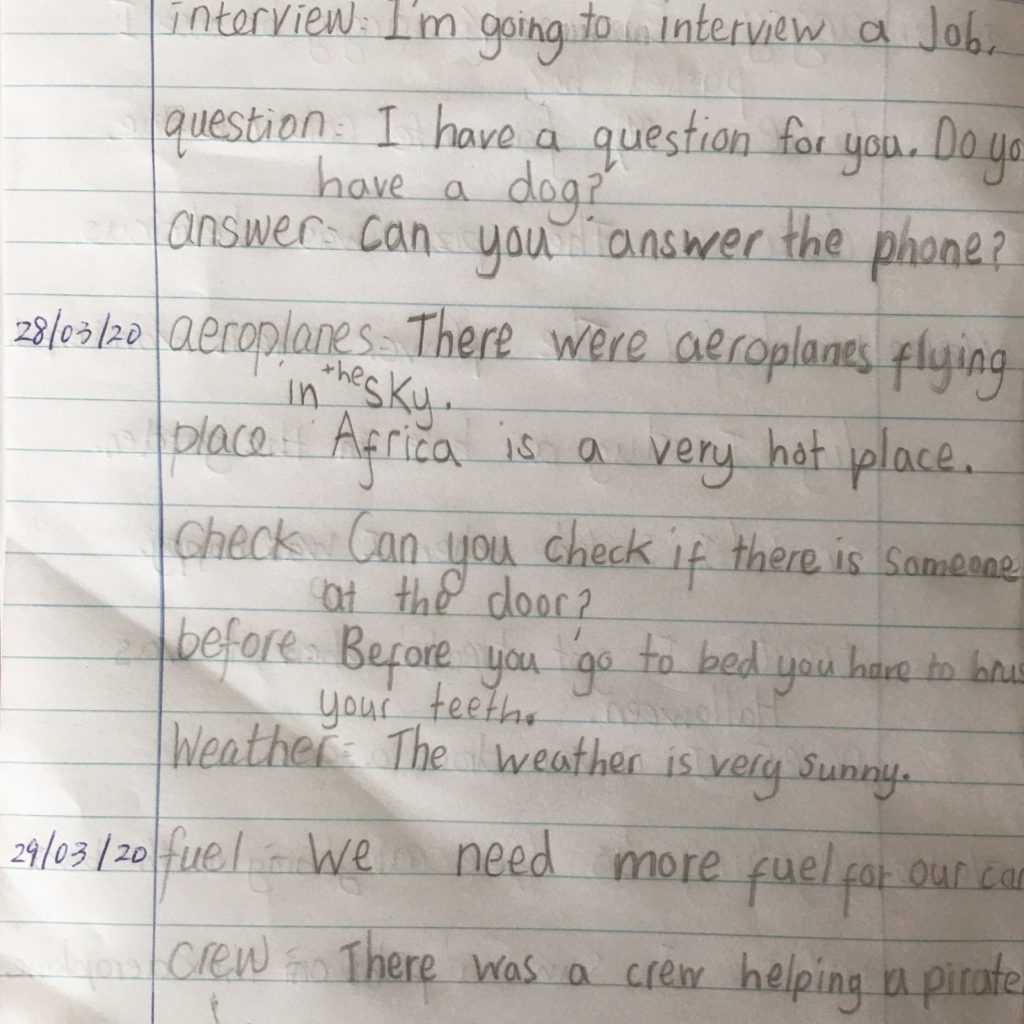 interview: I'm going to interview a Job.
question: I have a question for you. Do yo
have a dog?
answer: can you answer the phone?
28/03/20 aeroplanes: There were aeroplanes flying
in the sky.
place: Africa is a very hot place.
Check: Can you check if there is someone
at the door?
before: Before you go to bed you have to brus
your teeth.
Weather: The weather is very sunny.
29/03/20 fuel: We need more fuel for our car
crew: There was a crew helping a pirate